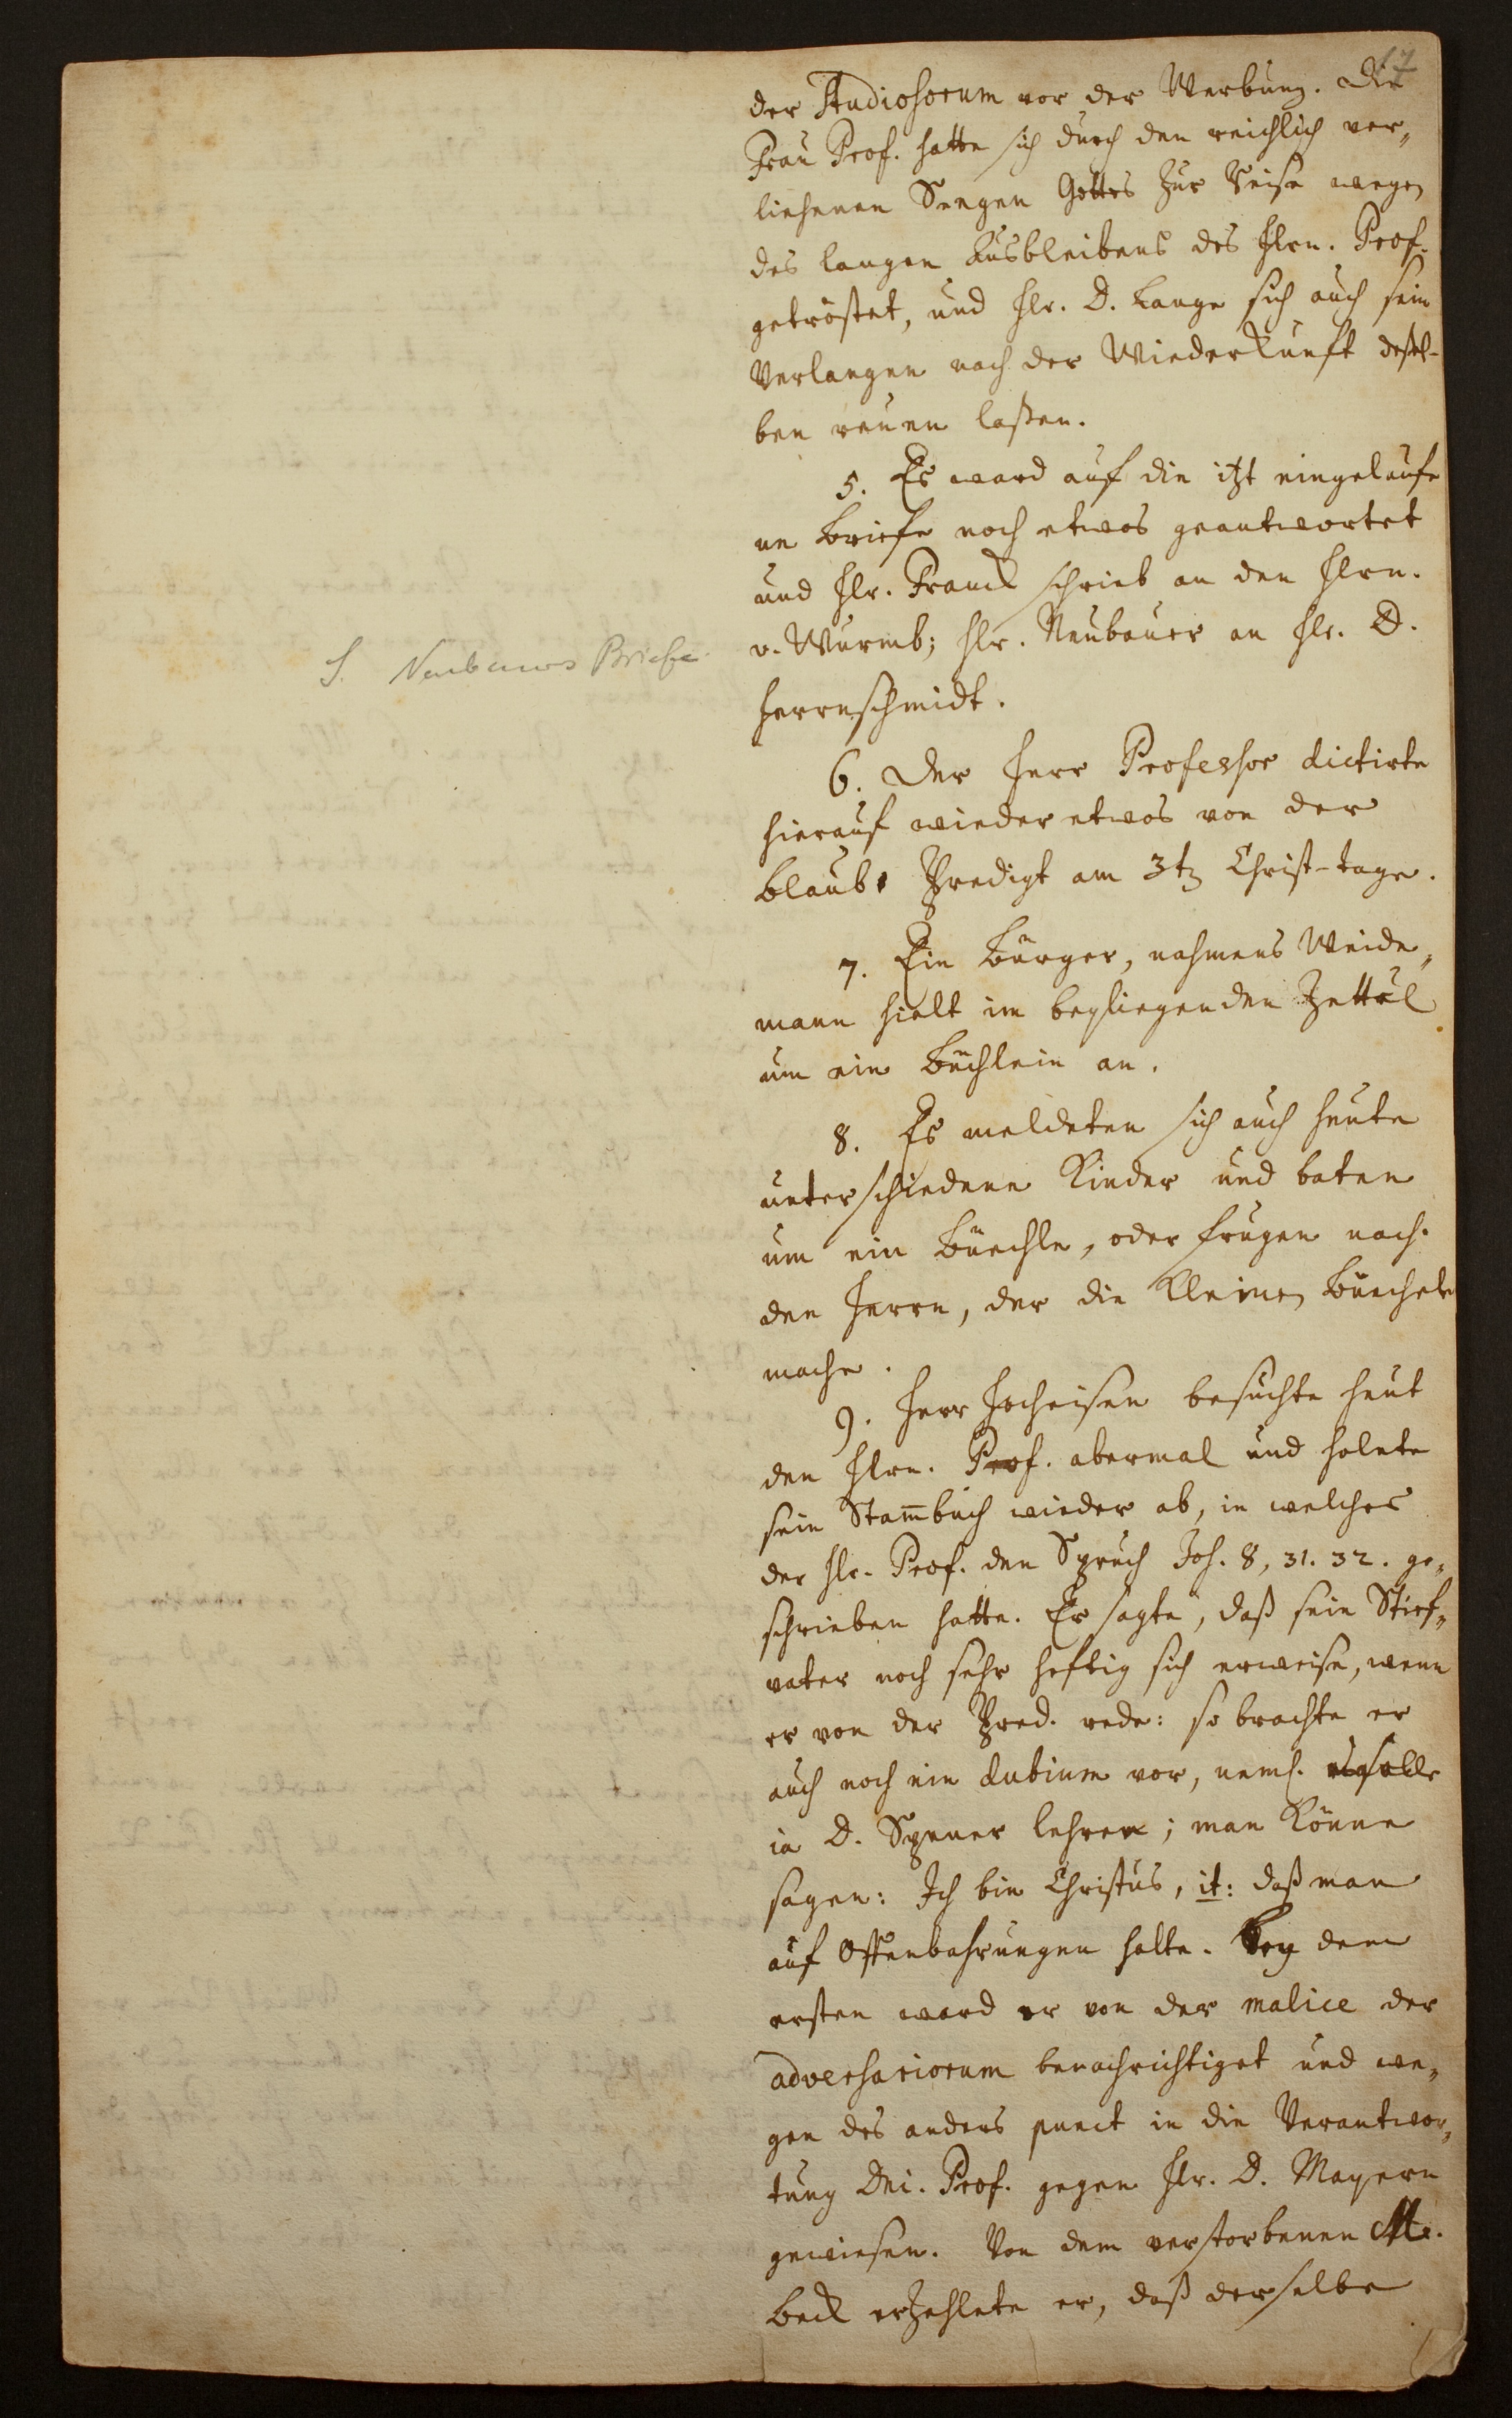 17
der Studiosorum vor der Werbung. Die
Frau Prof. hatte sich durch den reichlich ver„
liehenen Seegen Gottes zur Reise wegen
des langen Ausbleibens des Hrn. Prof.
getröstet, und Hr. D. Lange sich auch sein
Verlangen nach der Wiederkunft dessel-
ben reuen laßen.
5. Es ward auf die itzt eingelaufe
ne Briefe noch etwas geantwortet
und Hr. Franck schrieb an den Hrn.
v. Wurmb; Hr. Neubauer an Hr. D.
S. Neubauers Briefe.
Herrnschmidt.
6. Der Herr Professor dictirte
hierauf wieder etwas von der
Blaub. Predigt am 3t Christ-tage.
7. Ein Bürger, nahmens Weide„
mann hielt im beyliegenden Zettul
um ein Büchlein an.
8. Es meldeten sich auch heute
unterschiedene Kinder und baten
um ein Büechle, oder frugen nach
den Herrn, der die kleinen Büechele
mache.
9. Herr Hocheisen besuchte heut
den Hrn. Prof. abermal und holete
sein Stam̄buch wieder ab, in welches
der Hr. Prof. den Spruch Joh. 8, 31. 32. ge„
schrieben hatte. Er sagte, daß sein Stief„
vater noch sehr heftig sich erweise, wenn
er von der Pred. rede: so brachte er
auch noch ein dubium vor, neml. es solle
ja D. Spener lehren; man könne
sagen: Ich bin Christus, it: daß man
auf Offenbahrungen halte. Bey dem
ersten ward er von der malice der
adversariorum benachrichtiget und we„
gen des anders punct in die Verantwor„
tung Dni. Prof. gegen Hr. D. Mayern
gewiesen. Von dem verstorbenen M.
Beck erzehlete er, daß derselbe